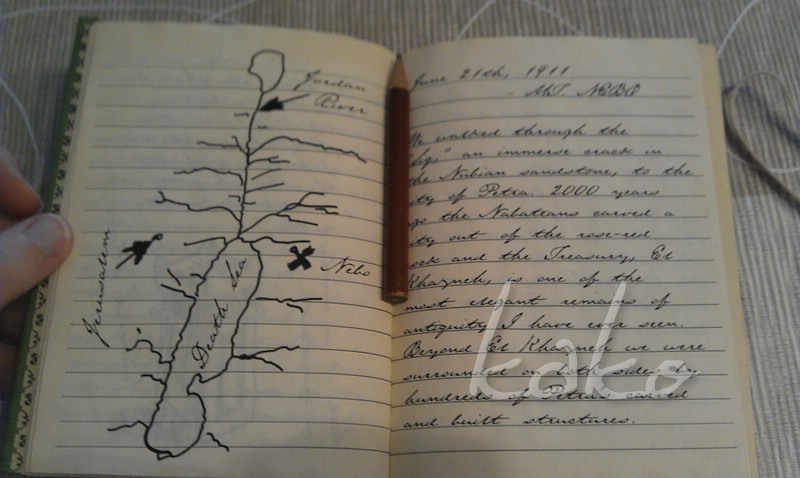 Jordan
River
Jerusalem
Nebo
Death Sea
June 21th, 1911
- MT. NEBO
We walked through the
"Siq" an immerse crack in
the Nubian sandstone, to the
city of Petra. 2000 years
ago the Nabateans carved a
city out of the rose-red
rock and the Treasury, El
Khazneh, is one of the
most elegant remains of
antiquity I have ever seen.
Beyond El Khazneh we were
surrounded on both sides by
hundreds of Petra's carved
and built structures.
kako